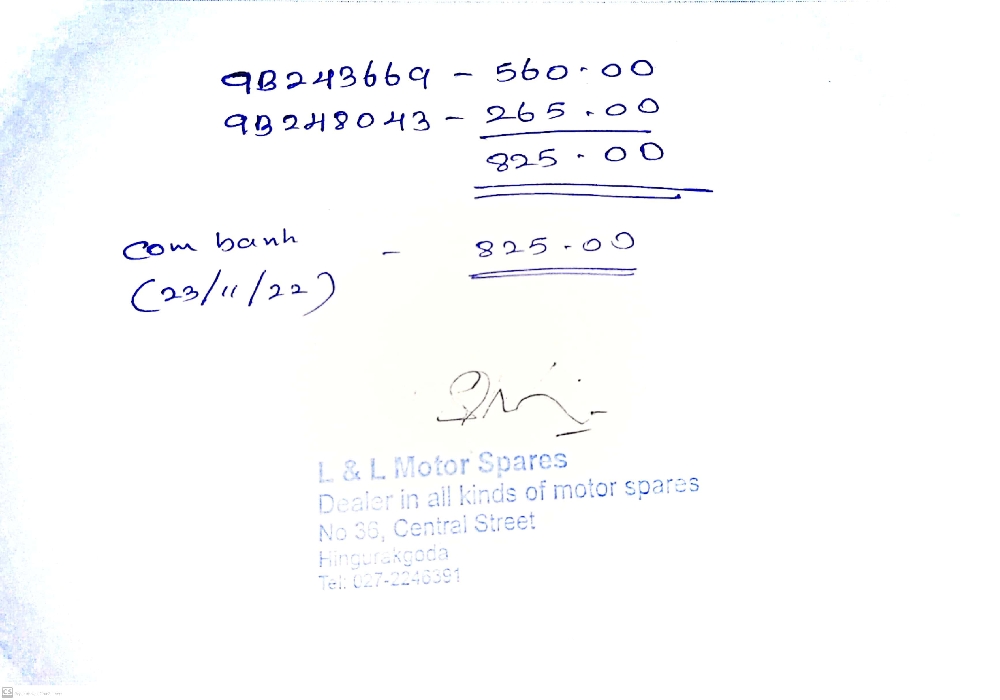 9B243669 - 560.00
9B248043 - 265.00
825.00
Com bank - 825.00
(23/11/22)
L & L Motor Spares
Dealer in all kinds of motor spares
No 36, Central Street
Hingurakgoda
Tel: 027-2246391
CS